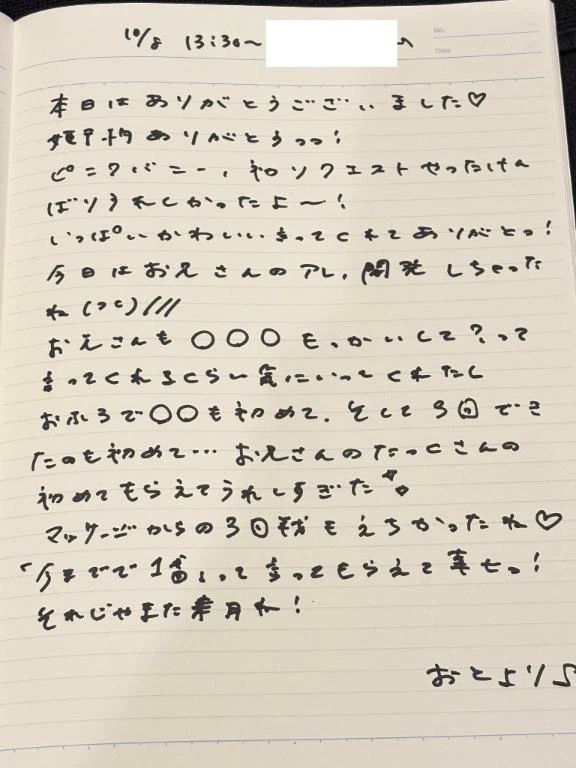 10/8 13:30〜
No.
Date
本日はありがとうございました♡
延長ありがとうっっ!
ピンクバニー、初リクエストやったけん
ばりうれしかったよ〜!
いっぱいかわいい言ってくれてありがとっ!
今日はお兄さんのアレ、開発しちゃった
ね(つc)///
お兄さんも○○○もっかいして?って
言ってくれるくらい気にいってくれたし
おふろで○○も初めて、そして3回でき
たのも初めて…お兄さんのたっくさんの
初めてもらえてうれしすぎた
マッサージからの3回戦もえちかったね♡
「今までで1番」って言ってもらえて幸せっ!
それじゃまた来月ね!
おとより♪